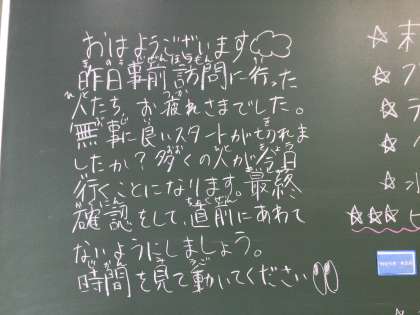 おはようございます
昨日事前訪問に行った
人たち、お疲れさまでした。
無事に良いスタートが切れま
したか?多くの人が今日
行くことになります。最終
確認をして、直前にあわて
ないようにしましょう。
時間を見て動いてください